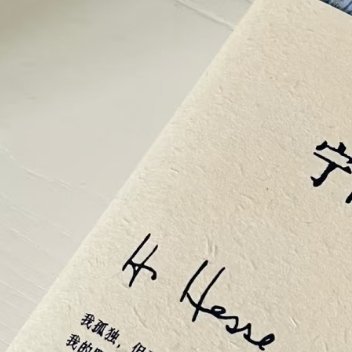 宁
H Hesse
我孤独，但
我的